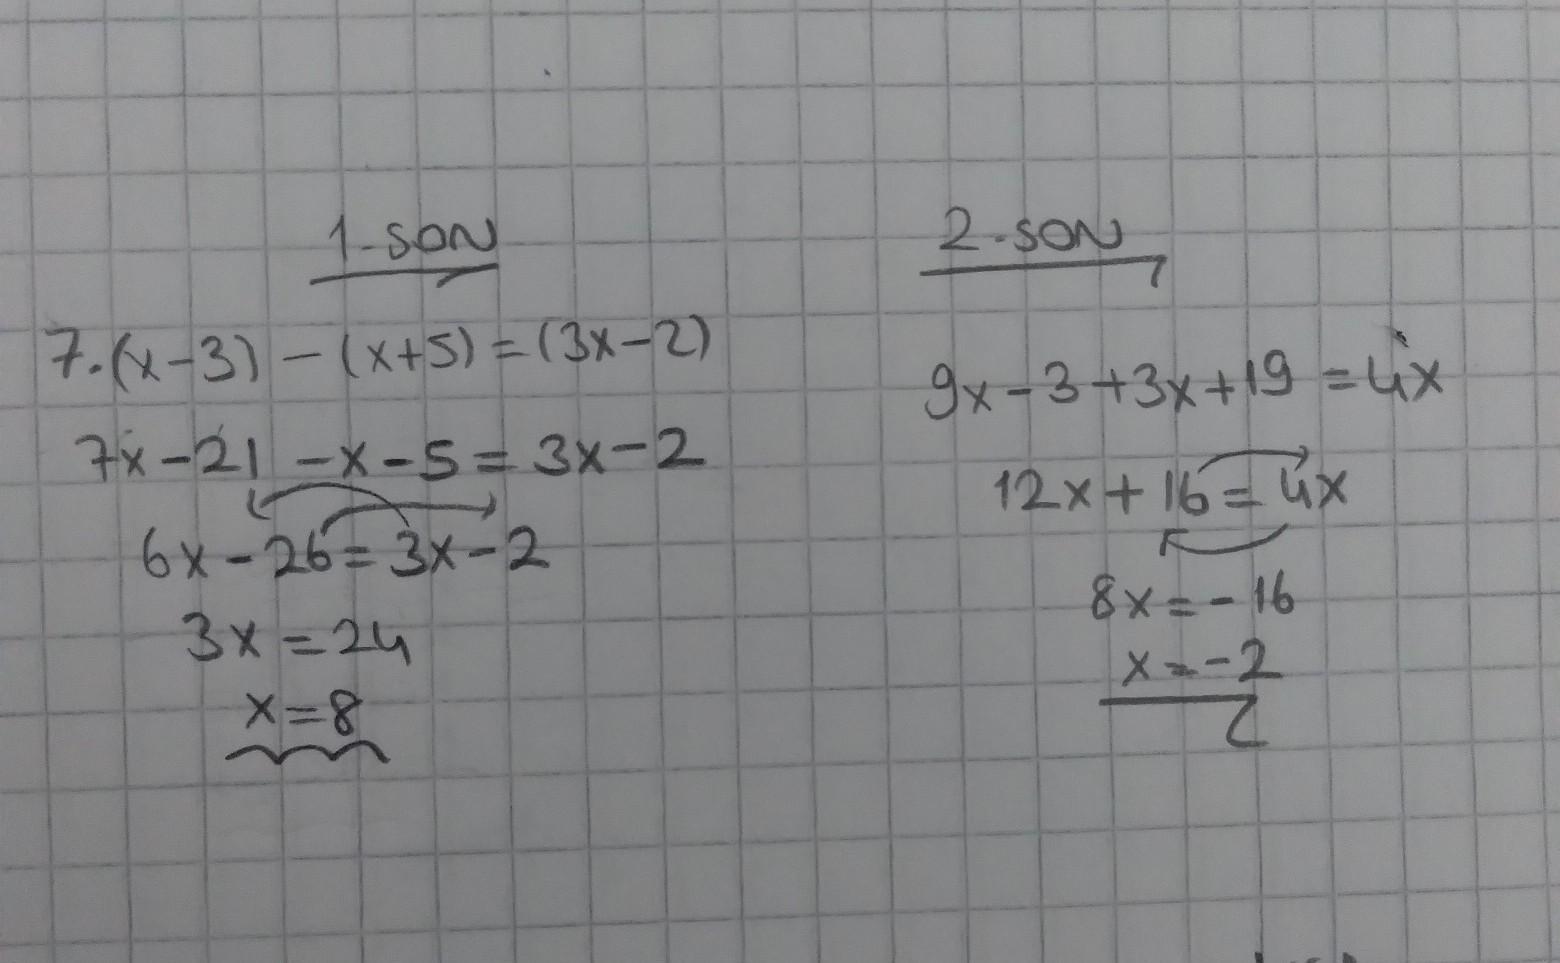 1-SON
7.(x-3) - (x+5) = (3x-2)
7x-21 -x-5 = 3x-2
6x-26 = 3x-2
3x = 24
x=8
2-SON
9x-3+3x+19 = 4x
12x+16 = 4x
8x = -16
x = -2